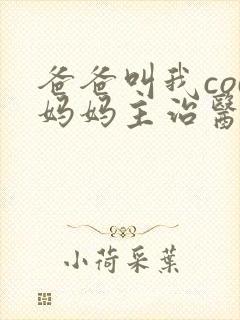 爸爸叫我co
妈妈主治醫
小荷采葉